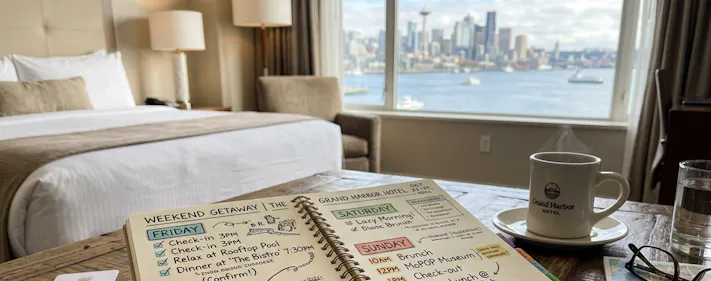 WEEKEND GETAWAY | THE
GRAND HARBOR HOTEL
FRIDAY
Check-in 3PM
Check-in 3PM
Relax at Rooftop Pool
Dinner at 'The Bistro' 7:30PM
(Confirm!)
SATURDAY
Lazy Morning!
Brunch
SUNDAY
10AM Brunch
12PM MoPOP Museum
1PM Check-out
Lunch @
Grand Harbor
HOTEL